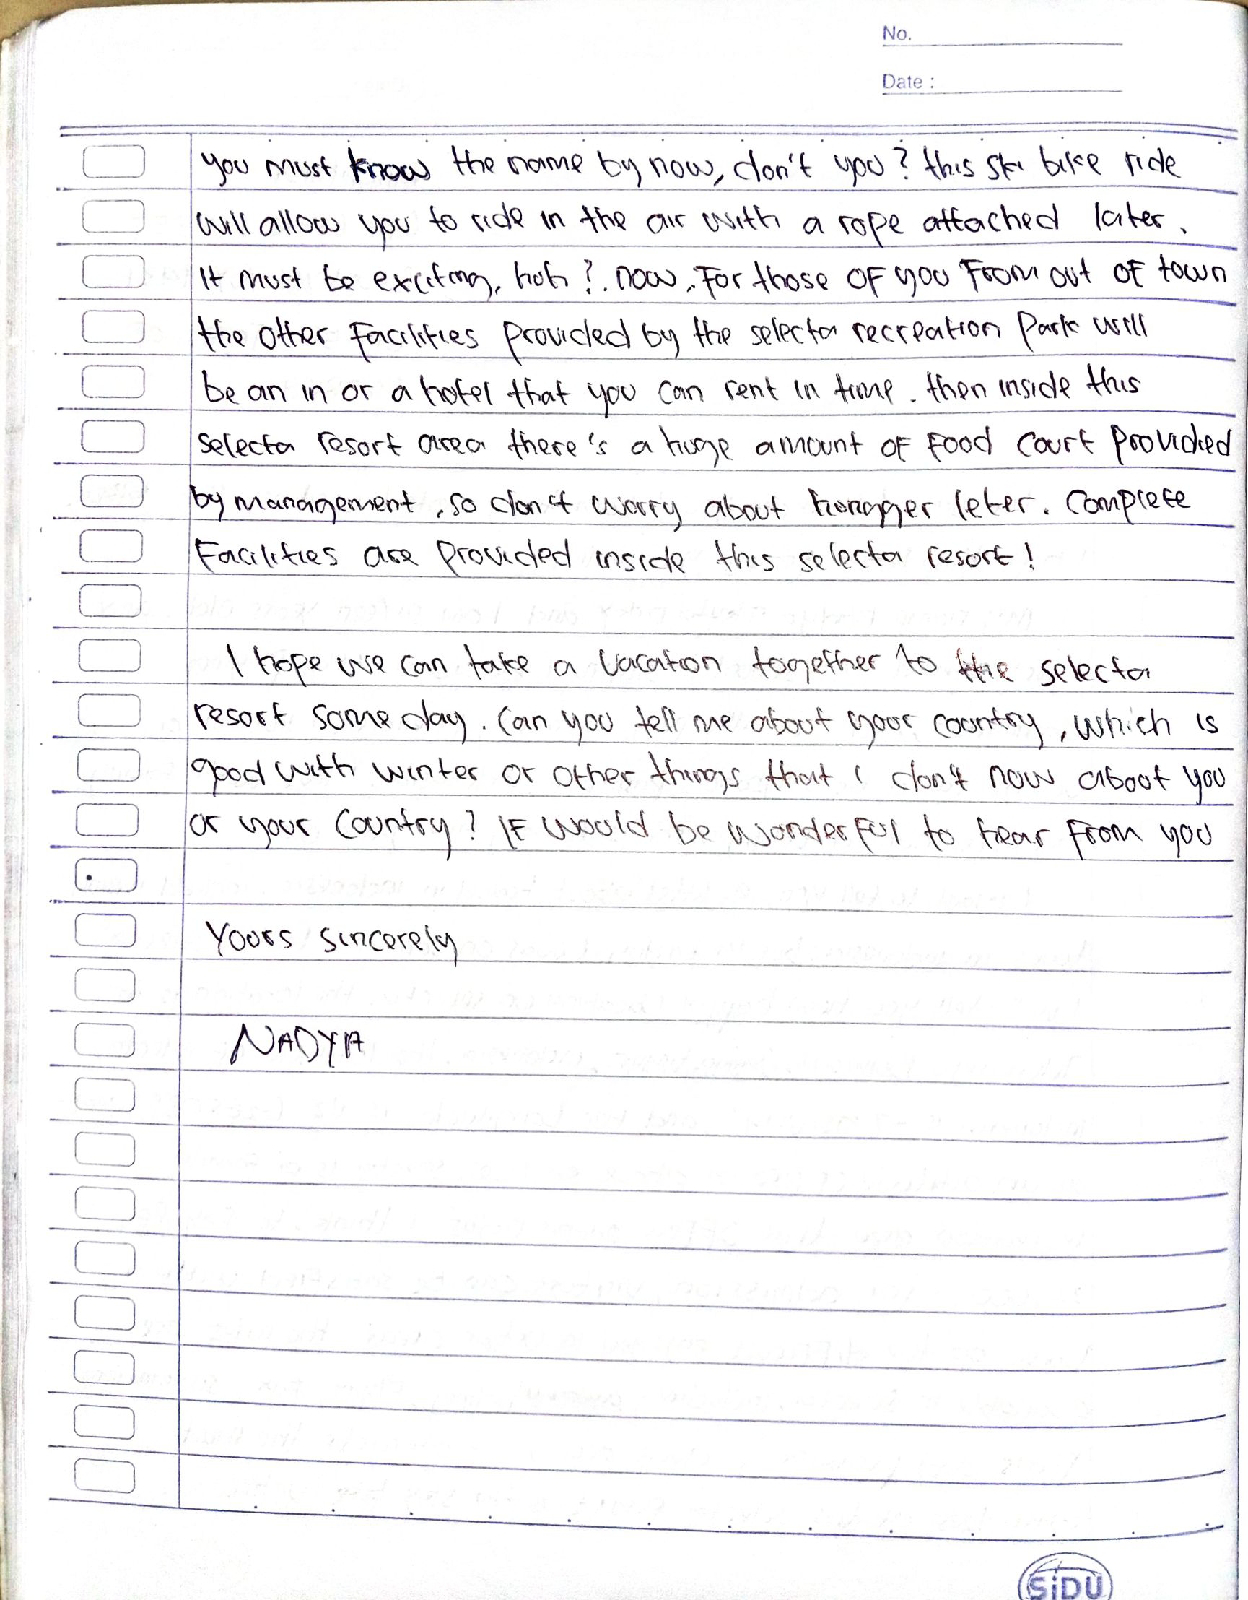 No.
Date :
you must know the name by now, don't you? this ski bike ride
will allow you to ride in the air with a rope attached later.
It must be exciting, huh?. now, For those of you From out of town
the other Facilities provided by the selecta recreation Park will
be an in or a hotel that you can rent in time. then inside this
selecta resort area there's a huge amount of Food court provided
by management, so don't worry about hungger leter. Complete
Facilities are provided inside this selecta resort!
I hope we can take a vacation together to the selecta
resort some day. Can you tell me about your country, which is
good with winter or other things that I don't now about you
or your Country? IF would be wonderful to hear From you
.
Yours sincerely
NADYA
SiDU